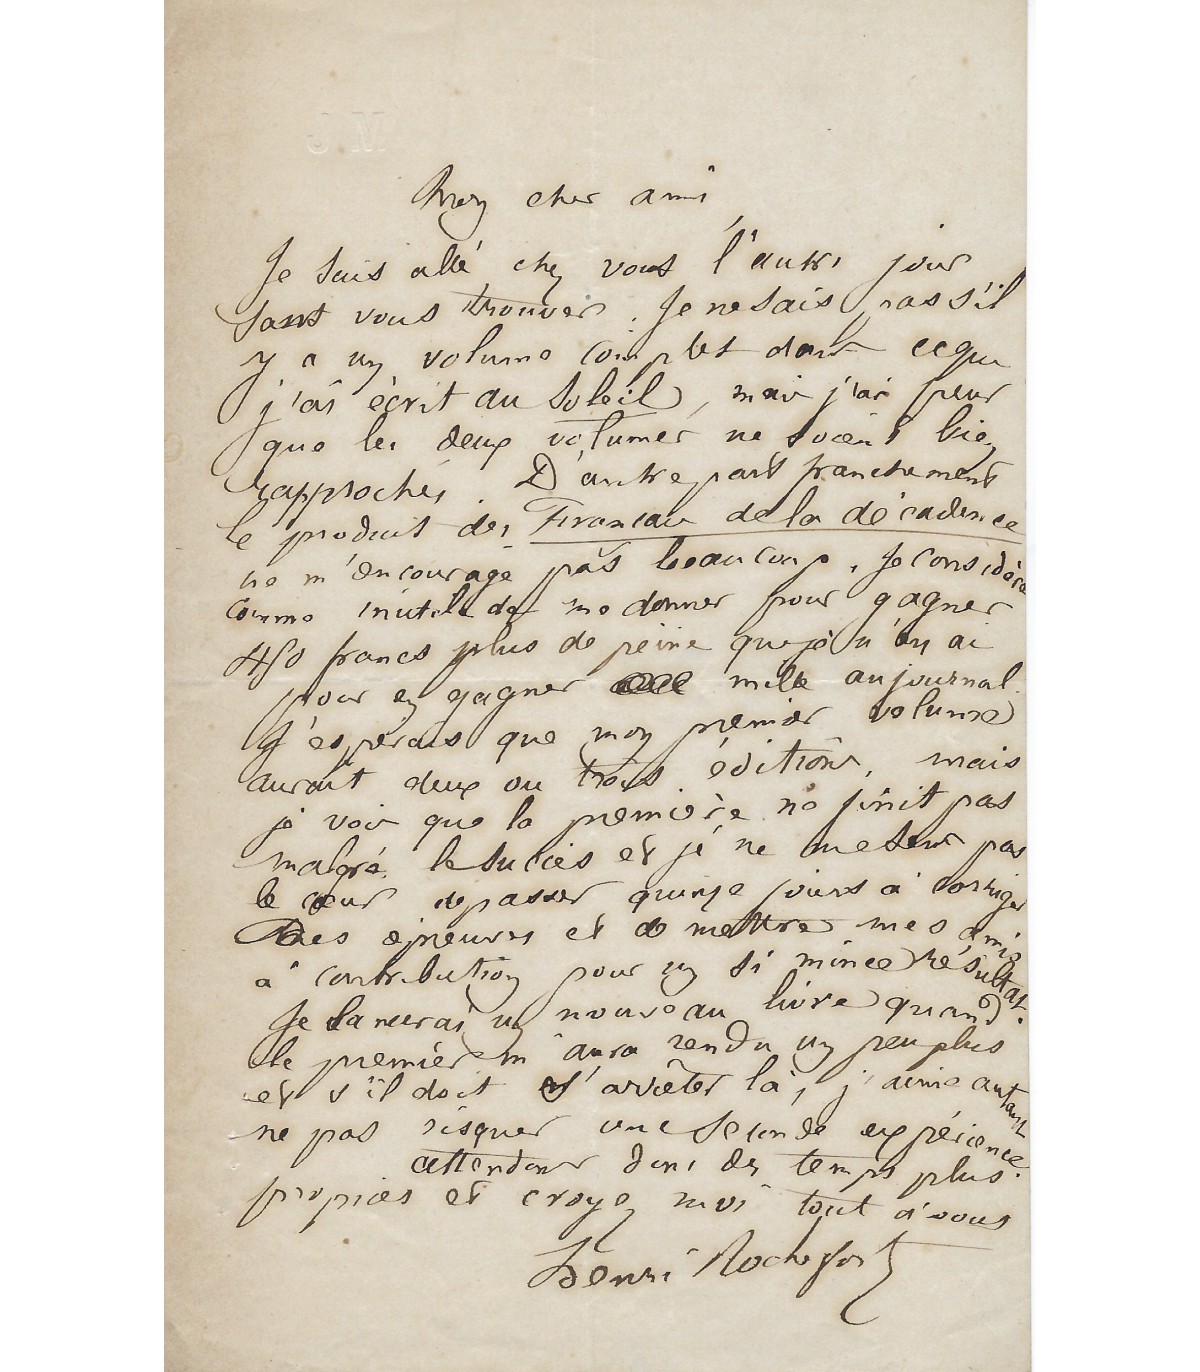 Mon cher ami
Je suis allé chez vous l'autre jour
sans vous trouver. Je ne sais pas s'il
y a un volume complet dans ce que
j'ai écrit au Soleil, mais j'ai peur
que les deux volumes ne soient bien
rapprochés. D'autre part franchement
le produit des Français de la décadence
ne m'encourage pas beaucoup. Je considère
comme inutile de me donner pour gagner
450 francs plus de peine que je n'en ai
pour en gagner mille au journal.
J'espérais que mon premier volume
aurait deux ou trois éditions, mais
je vois que la première ne finit pas
malgré le succès et je ne me sens pas
le cœur de passer quinze jours à corriger
des épreuves et de mettre mes amis
à contribution pour un si mince résultat.
Je lancerai un nouveau livre quand
le premier m'aura rendu un peu plus
et s'il doit s'arrêter là, j'aime autant
ne pas risquer une seconde expérience.
attendons donc des temps plus
propices et croyez moi tout à vous
Henri Rochefort